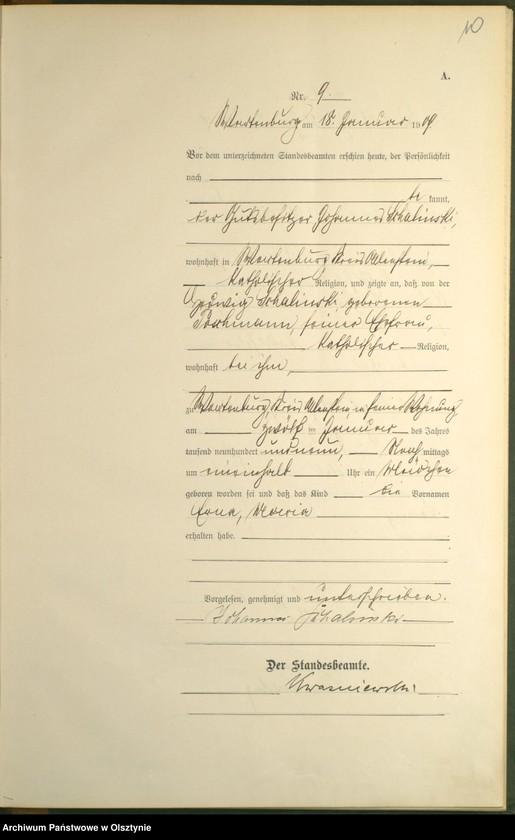 10
A.
Nr. 9.
Wartenburg am 18. Januar 1909.
Vor dem unterzeichneten Standesbeamten erschien heute, der Persönlichkeit
nach
be kannt,
der Gutsbesitzer Johannes Schalinski,
wohnhaft in Wartenburg Kreis Allenstein,
katholischer Religion, und zeigte an, daß von der
Hedwig Schalinski, geborenen
seiner Ehefrau,
katholischer Religion,
wohnhaft bei ihm,
zu Wartenburg, Kreis Allenstein, in seiner Wohnung
am zwölf ten Januar des Jahres
tausend neunhundert und neun, Nach mittags
um Uhr ein Mädchen
geboren worden sei und daß das Kind die Vornamen
Erna, Maria
erhalten habe.
Vorgelesen, genehmigt und unterschrieben.
Johannes Schalinski
Der Standesbeamte.
Kwasniewski
Archiwum Państwowe w Olsztynie